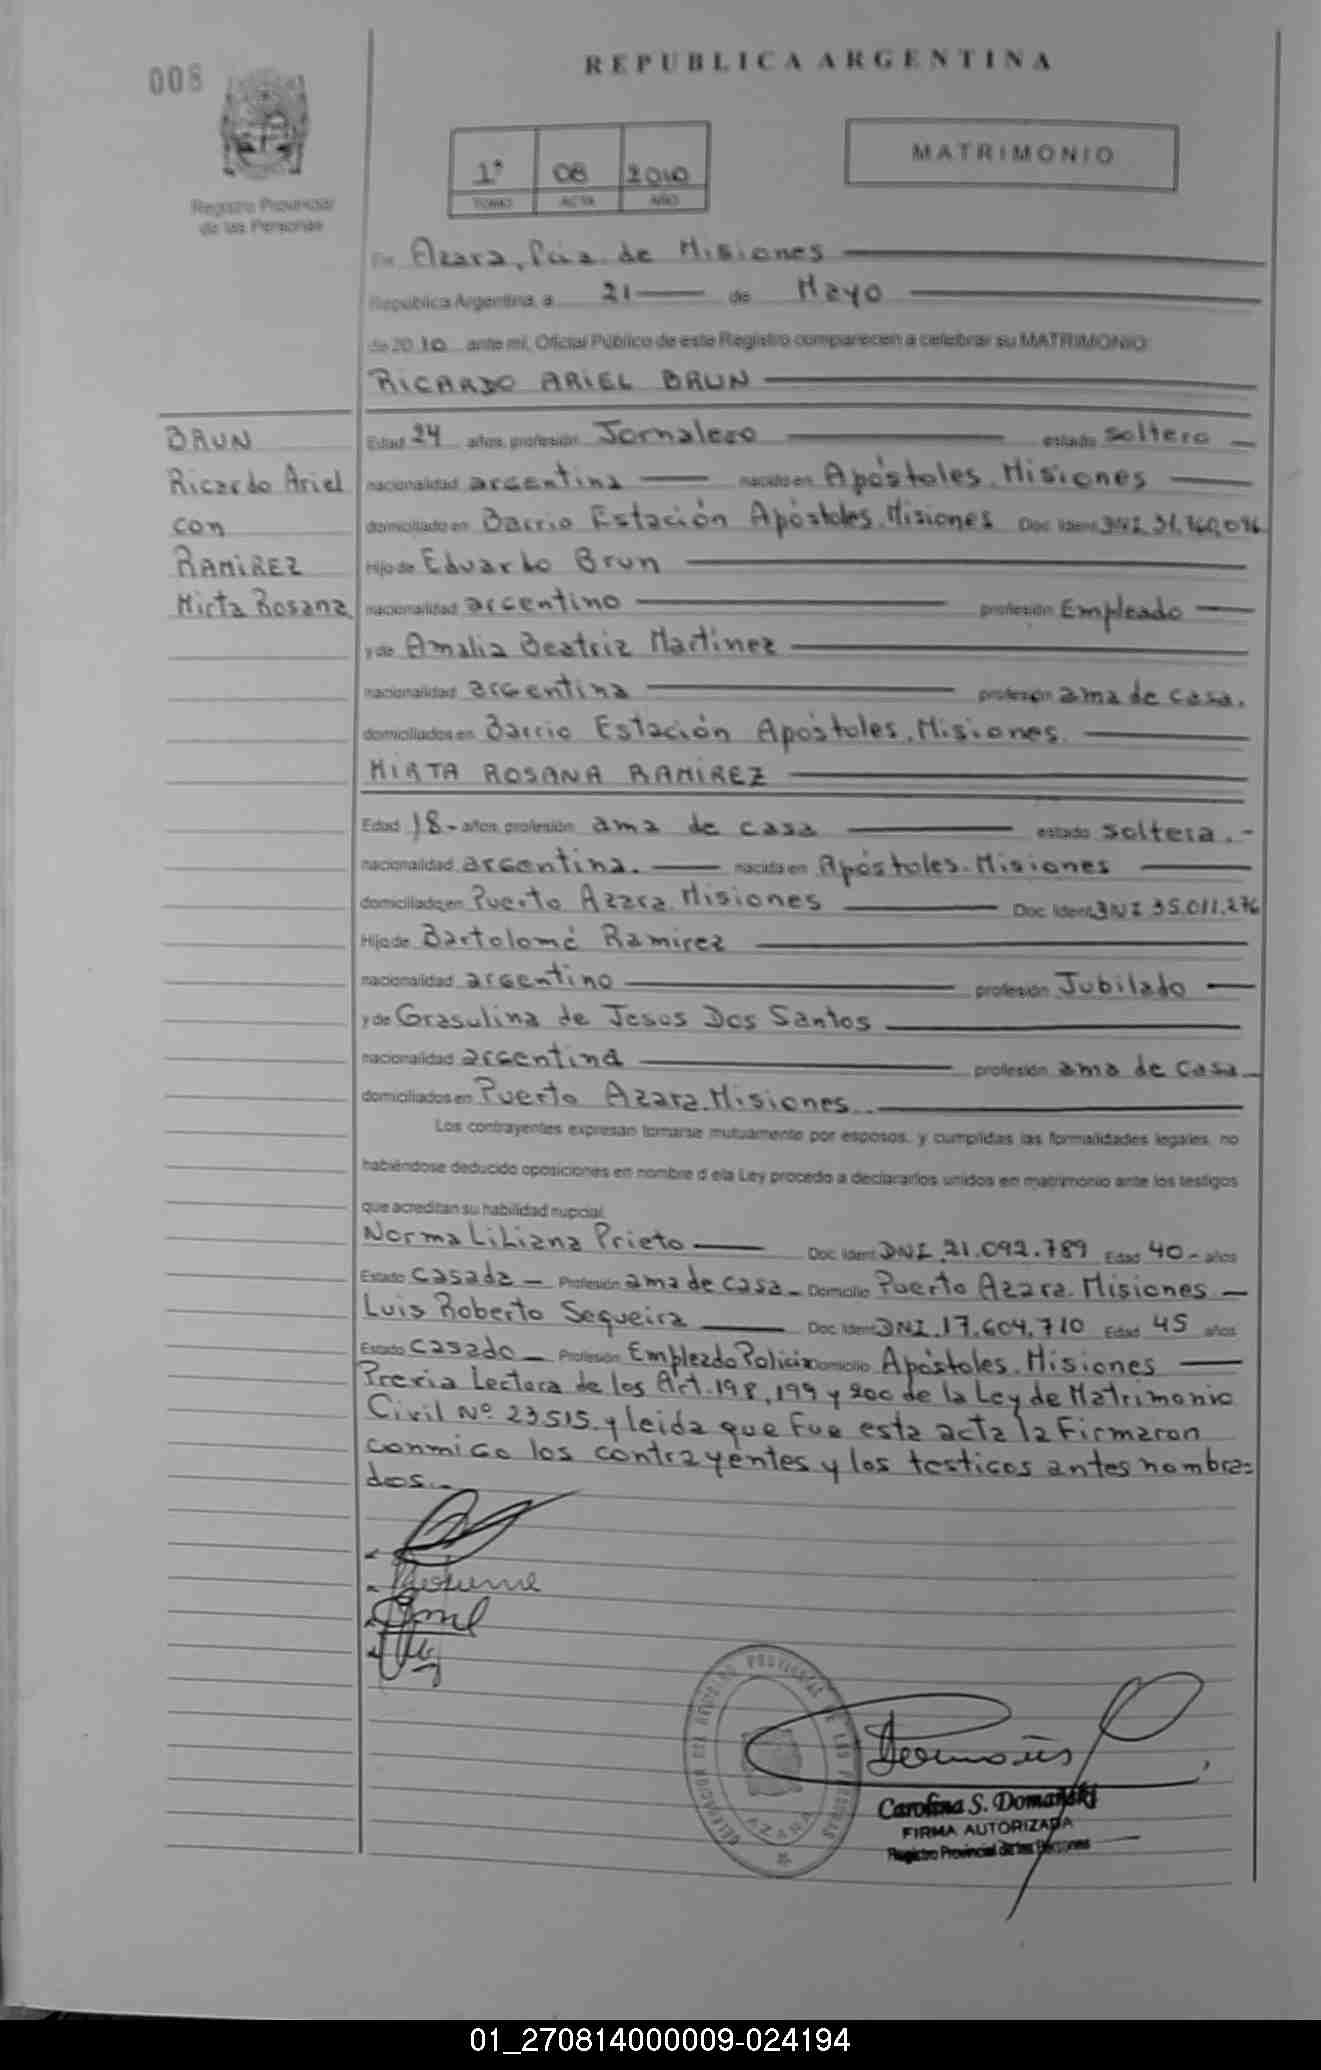 008
REPUBLICA ARGENTINA
1° 08 2010
TOMO ACTA AÑO
MATRIMONIO
Registro Provincial
de las Personas
En Azara, Pcia. de Misiones
República Argentina, a 21 de Mayo
de 2010 ante mí, Oficial Público de este Registro comparecen a celebrar su MATRIMONIO:
RICARDO ARIEL BRUN
BRUN
Ricardo Ariel
con
RAMIREZ
Mirta Rosana
Edad 24 años, profesión Jornalero estado soltero
nacionalidad argentina nacido en Apóstoles, Misiones
domiciliado en Barrio Estación Apóstoles, Misiones Doc. Ident. DNI 31.760.096
Hijo de Eduardo Brun
nacionalidad argentino profesión Empleado
y de Amalia Beatriz Martinez
nacionalidad argentina profesión ama de casa.
domiciliados en Barrio Estación Apóstoles, Misiones.
MIRTA ROSANA RAMIREZ
Edad 18- años, profesión ama de casa estado soltera.-
nacionalidad argentina. nacida en Apóstoles. Misiones
domiciliado en Puerto Azara, Misiones Doc. Ident. DNI 35.011.276
Hijo de Bartolomé Ramirez
nacionalidad argentino profesión Jubilado
y de Grasulina de Jesus Dos Santos
nacionalidad argentina profesión ama de casa
domiciliados en Puerto Azara, Misiones.
Los contrayentes expresan tomarse mutuamente por esposos, y cumplidas las formalidades legales, no
habiéndose deducido oposiciones en nombre d ela Ley procedo a declararlos unidos en matrimonio ante los testigos
que acreditan su habilidad nupcial.
Norma Liliana Prieto Doc. Ident. DNI. 21.092.789 Edad 40- años
Estado casada - Profesión ama de casa - Domicilio Puerto Azara. Misiones -
Luis Roberto Sequeira Doc. Ident. DNI. 17.604.710 Edad 45 años
Estado casado - Profesión Empleado Policia Domicilio Apóstoles. Misiones
Previa Lectura de los Art. 198, 199 y 200 de la Ley de Matrimonio
Civil Nº 23515. y leida que fue esta acta la firmaron
conmigo los contrayentes y los testigos antes nombra=
dos.-
DELEGACION DEL REGISTRO PROVINCIAL DE LAS PERSONAS
AZARA
Carolina S. Domański
FIRMA AUTORIZADA
Registro Provincial de las Personas
01_270814000009-024194